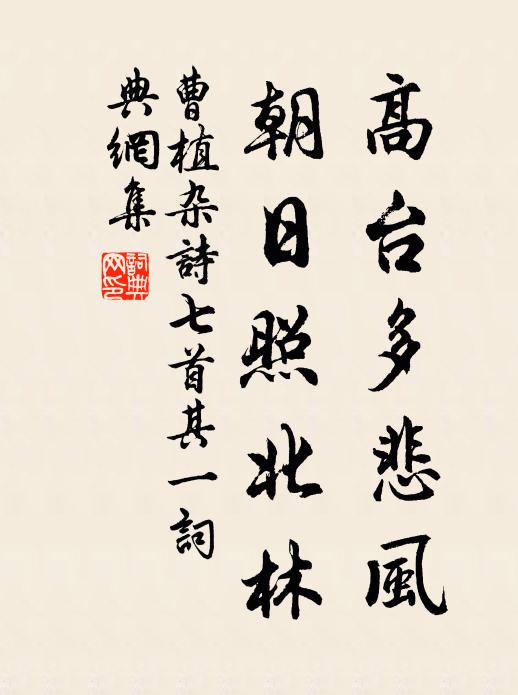 高台多悲風
朝日照北林
曹植杂詩七首其一詞
典網集
詞典网印